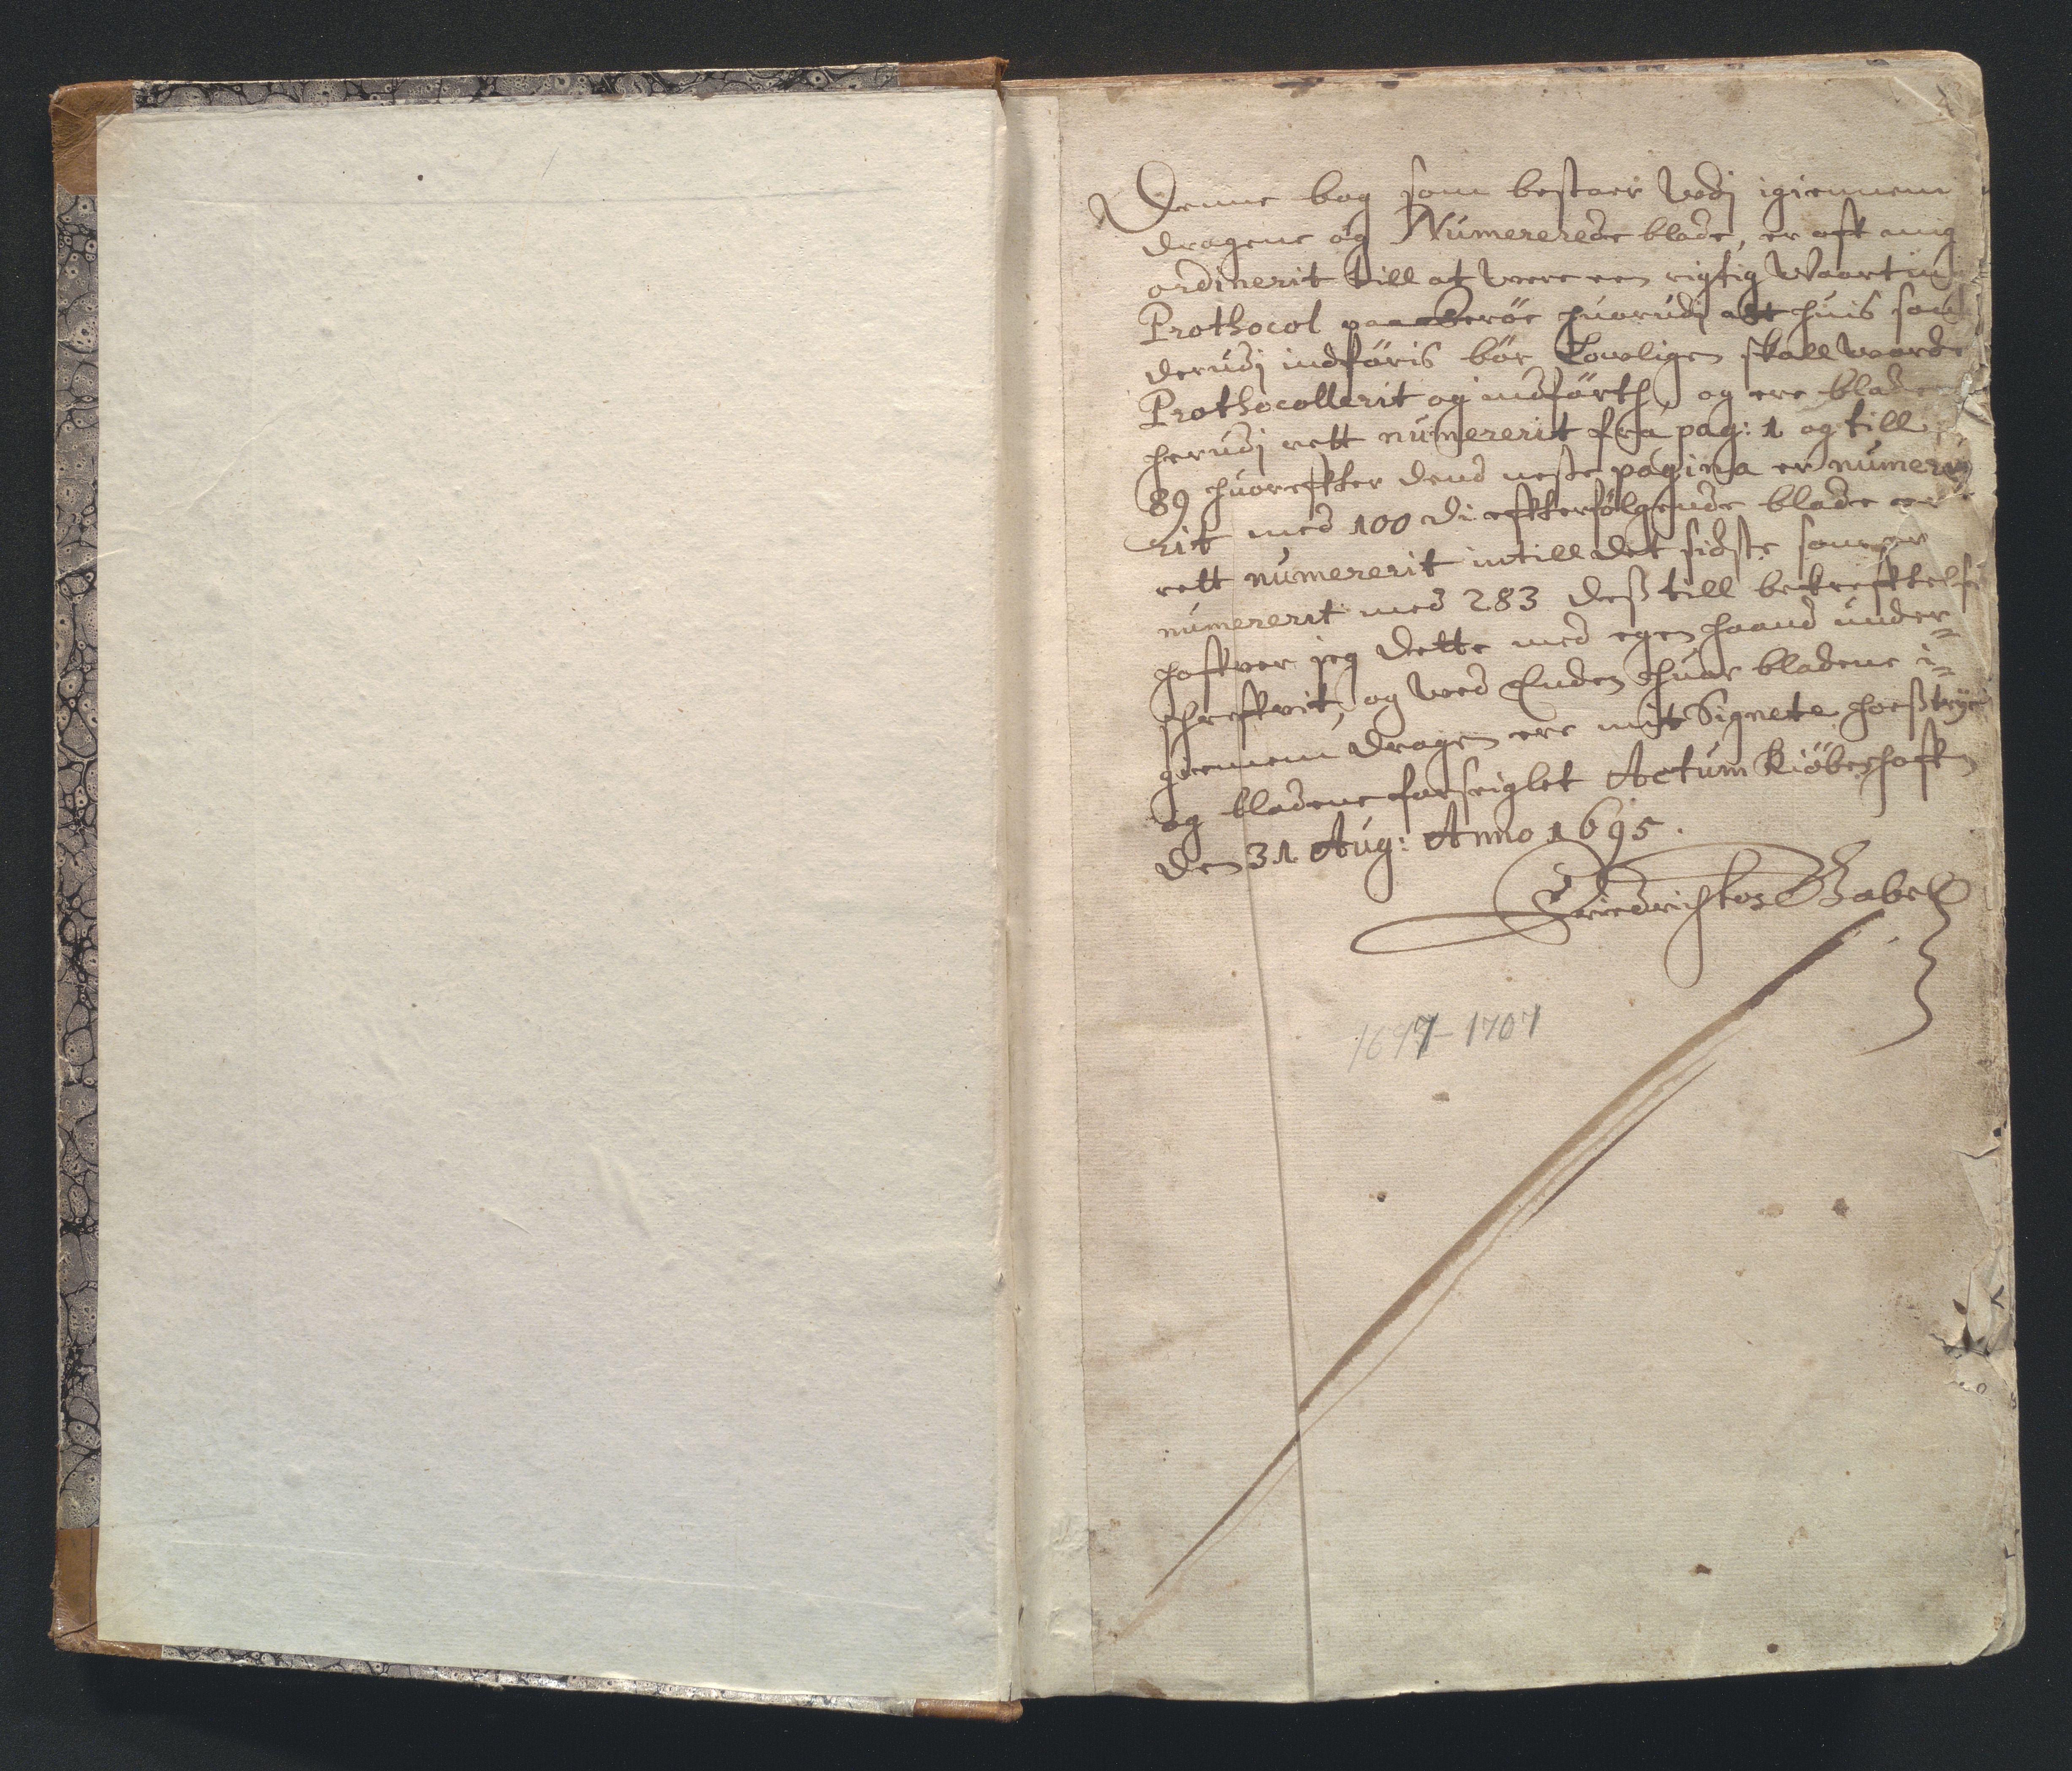 Denne bog som bestaer Udj igiennem
dragene og Numererede blade, er aff mig
ordinerit till at were een rigtig Waarting
Prothocol paa Færöe huorudj alt huis som
derudj indföris bör Lowligen skall worde
Prothocollerit og indförth, og ere bladene
herudj rett numererit fra pag: 1 og till
89 huoreffter dend neste pagina er numere
rit med 100 di effterfölgende blade er
rett numererit intill det sidste som er
numererit med 283 dess till bekrefftelse
haffver jeg dette med egen haand under=
schreffvit, og ved Enden huor bladene i=
giennem dragen ere mit Signete hoesstryct
og bladene forseiglet Actum Kiöbenhaffn
den 31 Aug: Anno 1695.
Friedrich Gabel
1697-1707